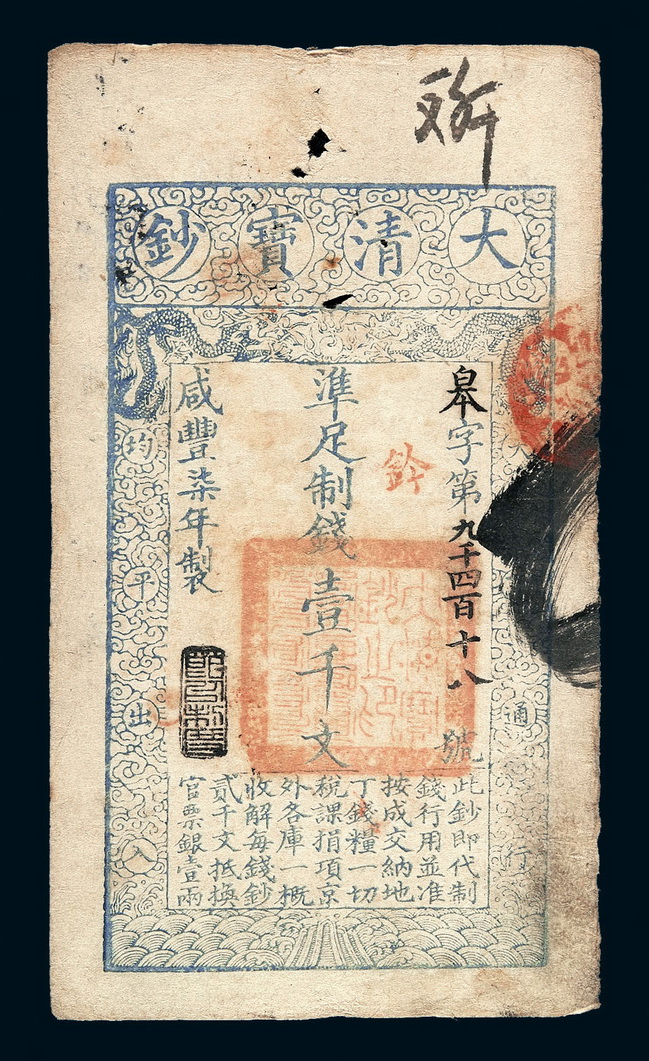 大清寶鈔
皋字第九千四百十八號
準足制錢壹千文
咸豐柒年製
鈐
均平出入
通行
此鈔即代制
錢行用並准
按成交納地
丁錢糧一切
稅課捐項京
外各庫一概
收解每錢鈔
貳千文抵換
官票銀壹兩